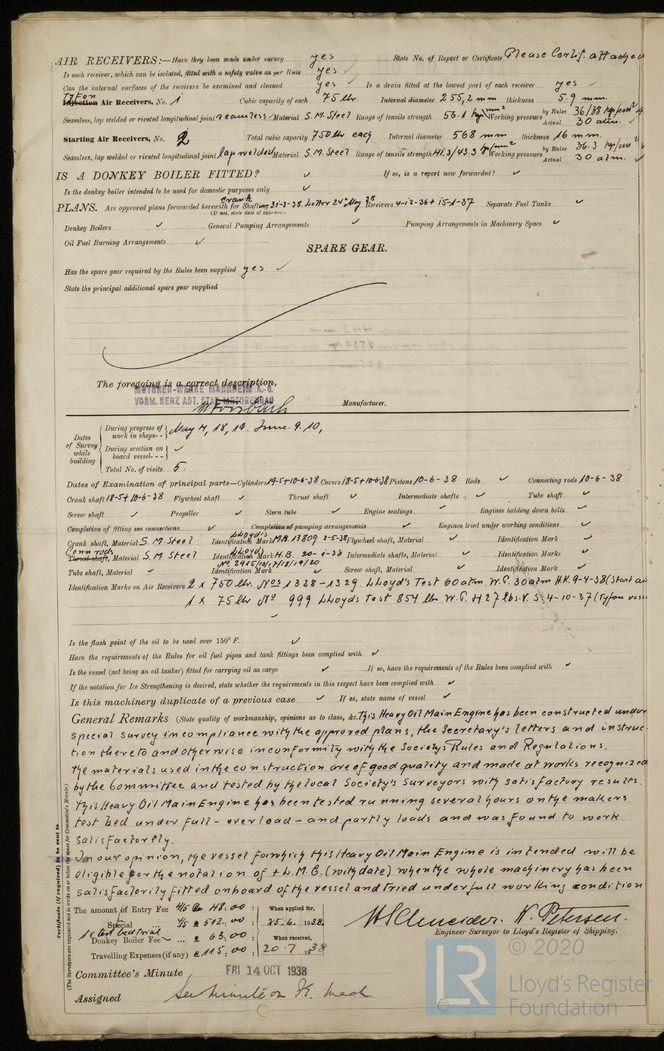 AIR RECEIVERS:—Have they been made under survey yes State No. of Report or Certificate Please Certif. attached
Is each receiver, which can be isolated, fitted with a safety valve as per Rule yes ✓
Can the internal surfaces of the receivers be examined and cleaned yes Is a drain fitted at the lowest part of each receiver yes ✓
Tyfon
Injection Air Receivers, No. 1 Cubic capacity of each 75 ltr. Internal diameter 255,2 mm thickness 5.9 mm.
Seamless, lap welded or riveted longitudinal joint seamless Material S.M. Steel Range of tensile strength Working pressure by Rules 36/38 kg/cm²
Actual 30 atm.
Starting Air Receivers, No. 2 Total cubic capacity 750 ltr each Internal diameter 568 mm thickness 16 mm.
Seamless, lap welded or riveted longitudinal joint lap welded Material S.M. Steel Range of tensile strength 41.3/43.3 kg/mm² Working pressure by Rules 36.3 kg/cm²
Actual 30 atm. ✓
IS A DONKEY BOILER FITTED? ✓ If so, is a report now forwarded? ✓
Is the donkey boiler intended to be used for domestic purposes only ✓
PLANS. Are approved plans forwarded herewith for Shafting crank 31-3-38. Letter 24th May 38 Receivers 4-12-36 + 15-1-37 Separate Fuel Tanks ✓
(If not, state date of approval)
Donkey Boilers ✓ General Pumping Arrangements ✓ Pumping Arrangements in Machinery Space ✓
Oil Fuel Burning Arrangements ✓
SPARE GEAR.
Has the spare gear required by the Rules been supplied yes ✓
State the principal additional spare gear supplied
The foregoing is a correct description,
MOTOREN-WERKE MANNHEIM A.-G.
VORM. BENZ ABT. STAT. MOTORENBAU
Manufacturer.
Dates of Survey while building
During progress of work in shops-- May 4, 18, 19. June. 9. 10,
During erection on board vessel--- ✓
Total No. of visits 5.
Dates of Examination of principal parts—Cylinders 19-5+10-6-38 Covers 18-5+10-6-38 Pistons 10-6-38 Rods ✓ Connecting rods 10-6-38
Crank shaft 18-5+10-6-38 Flywheel shaft ✓ Thrust shaft ✓ Intermediate shafts ✓ Tube shaft ✓
Screw shaft ✓ Propeller ✓ Stern tube ✓ Engine seatings ✓ Engines holding down bolts ✓
Completion of fitting sea connections ✓ Completion of pumping arrangements ✓ Engines tried under working conditions ✓
Crank shaft, Material S.M. Steel Identification Mark Lloyd's M.B. 13809 2-5-38 Flywheel shaft, Material ✓ Identification Mark ✓
Conn. rods
Thrust shaft, Material S.M. Steel Identification Mark Lloyds H.B. 20-1-38 Intermediate shafts, Material ✓ Identification Marks ✓
Tube shaft, Material ✓ Identification Mark ✓ Screw shaft, Material ✓ Identification Mark ✓
Identification Marks on Air Receivers 2 x 750 ltr. Nos 1328-1329. Lloyd's Test 60 atm. W.P. 30 atm H.K. 9-4-38 (Start air
1 x 75 ltr No 999 Lloyds Test 854 lbs W.P. 427 lbs. V.S. 4-10-37 (Tyfon
Is the flash point of the oil to be used over 150° F. ✓
Have the requirements of the Rules for oil fuel pipes and tank fittings been complied with ✓
Is the vessel (not being an oil tanker) fitted for carrying oil as cargo ✓ If so, have the requirements of the Rules been complied with ✓
If the notation for Ice Strengthening is desired, state whether the requirements in this respect have been complied with ✓
Is this machinery duplicate of a previous case ✓ If so, state name of vessel ✓
General Remarks (State quality of workmanship, opinions as to class, &c. This Heavy Oil Main Engine has been constructed under
special survey in compliance with the approved plans, the Secretary's letters and instruc-
tion thereto and otherwise in conformity with the Society's Rules and Regulations.
The materials used in the construction are of good quality and made at works recognized
by the Committee and tested by the local Society's Surveyors with satisfactory results.
This Heavy Oil Main Engine has been tested running several hours on the makers
test bed under full-overload-and partly loads and was found to work
satisfactorily.
In our opinion, the vessel for which this Heavy Oil Main Engine is intended will be
eligible for the notation of + L.M.C. (with date) when the whole machinery has been
satisfactorily fitted onboard of the vessel and tried under full working condition
The amount of Entry Fee 4/5 £ 48.00 When applied for,
Special 4/5 £ 512.00 25.6. 1938.
Donkey Boiler Fee £ 63.00 When received,
Travelling Expenses (if any) £ 115.00 20.7 1938
W Schneider. N. Petersen.
Engineer Surveyor to Lloyd's Register of Shipping.
Committee's Minute FRI 14 OCT 1938
Assigned See minute on
Certificate (if required) to be sent to
(The Surveyors are requested not to write on or below the space for Committee's Minute.)
LR
© 2020
Lloyd's Register
Foundation